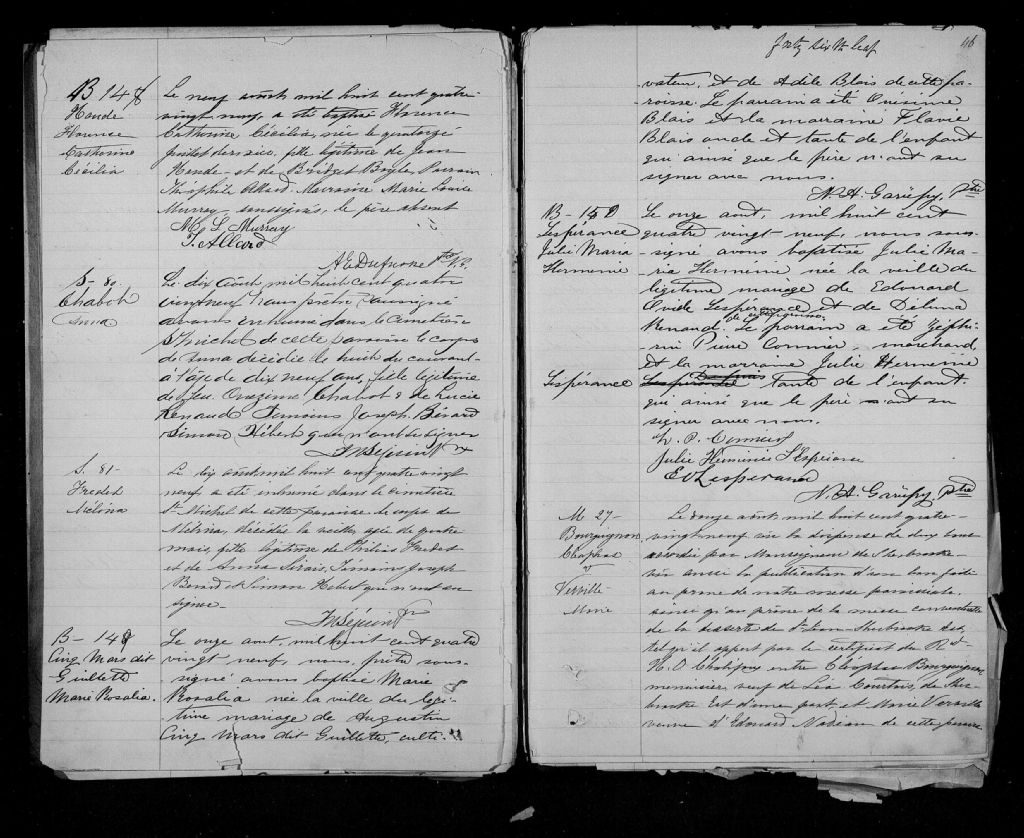 B 148
Hondé
Florence
Catherine
Cécilia
Le neuf août mil huit cent quatre-
vingt neuf, a été baptisé Florence
Catherine Cécilia, née le quatorze
juillet dernier, fille légitime de Jean
Honde et de Bridget Boyle. Parrain
Théophile Allard. Marraine Marie Louise
Murray soussignés, le père absent
M. L. Murray
T. Allard
A. E. Dufresne Ptre
S- 80
Chabot
Anna
Le dix août, mil huit cent quatre
vingt neuf nous prêtre soussigné
avons inhumé dans le cimetière
St Michel de cette paroisse le corps
de Anna décédée le huit du courant
à l'âge de dix neuf ans, fille légitime
de feu Onézime Chabot & de Lucie
Renaud Témoins Joseph Bérard
Simon Hébert qui n'ont su signer
S. 81-
Fredet
Mélina
Le dix août mil huit cent quatre vingt
neuf a été inhumé dans le cimetière
St Michel de cette paroisse le corps de
Mélina, décédée la veille, agée de quatre
mois, fille légitime de Fredet
et de Anna Sirais, Témoins Joseph
Berard et Simon Hebert qui n'ont su
signer-
B- 149
Cinq Mars dit
Guillette
Marie Rosalia.
Le onze aout, mil huit cent quatre
vingt neuf, nous, prêtre sous-
signé avons baptisé Marie
Rosalia née la veille du légi-
time mariage de Augustin
Cinq Mars dit Guillette, culti-
forty sixth leaf
46
vateur, et de Adèle Blais de cette pa-
roisse. Le parrain a été Onesime
Blais et la marraine Flavie
Blais oncle et tante de l'enfant
qui ainsi que le père n'ont su
signer avec nous.
N. A. Gariépy, Ptre
B- 150
Lespérance
Julie Maria
Hermenie
Le onze aout, mil huit cent
quatre vingt-neuf, nous sous-
signé avons baptisé Julie Ma-
ria Hermenie née la veille du
légitime mariage de Edouard
Ovide Lespérance et de Délima
Renaud. Le parrain a été Zéphi-
rin Pierre Cormier marchand,
et la marraine Julie Hermeine
Lespérance
tante de l'enfant.
qui ainsi que le père ont su
signer avec nous.
Z. P. Cormier
Julie Héminie L'Espérance
E O Lesperance
N. A. Gariépy, Ptre
M 27-
Bourguignon
Cléophas
et
Verville
Marie
Le douze août, mil huit cent quatre-
vingt neuf vu la dispense de deux bans
accordée par Monseigneur de Sherbrooke
vu aussi la publication d'un ban faite
au prône de notre messe paroissiale,
ainsi qu'au prône de la messe conventuelle
de la desserte de St Jean-Sherbrooke Est,
tel qu'il appert par le certificat du Rvd
H. O. Chalifoux entre Cléophas Bourguignon
menuisier, veuf de Léa Courtois, de Sher-
brooke Est d'une part, et Marie Verville
veuve d'Edouard Nadeau de cette paroisse